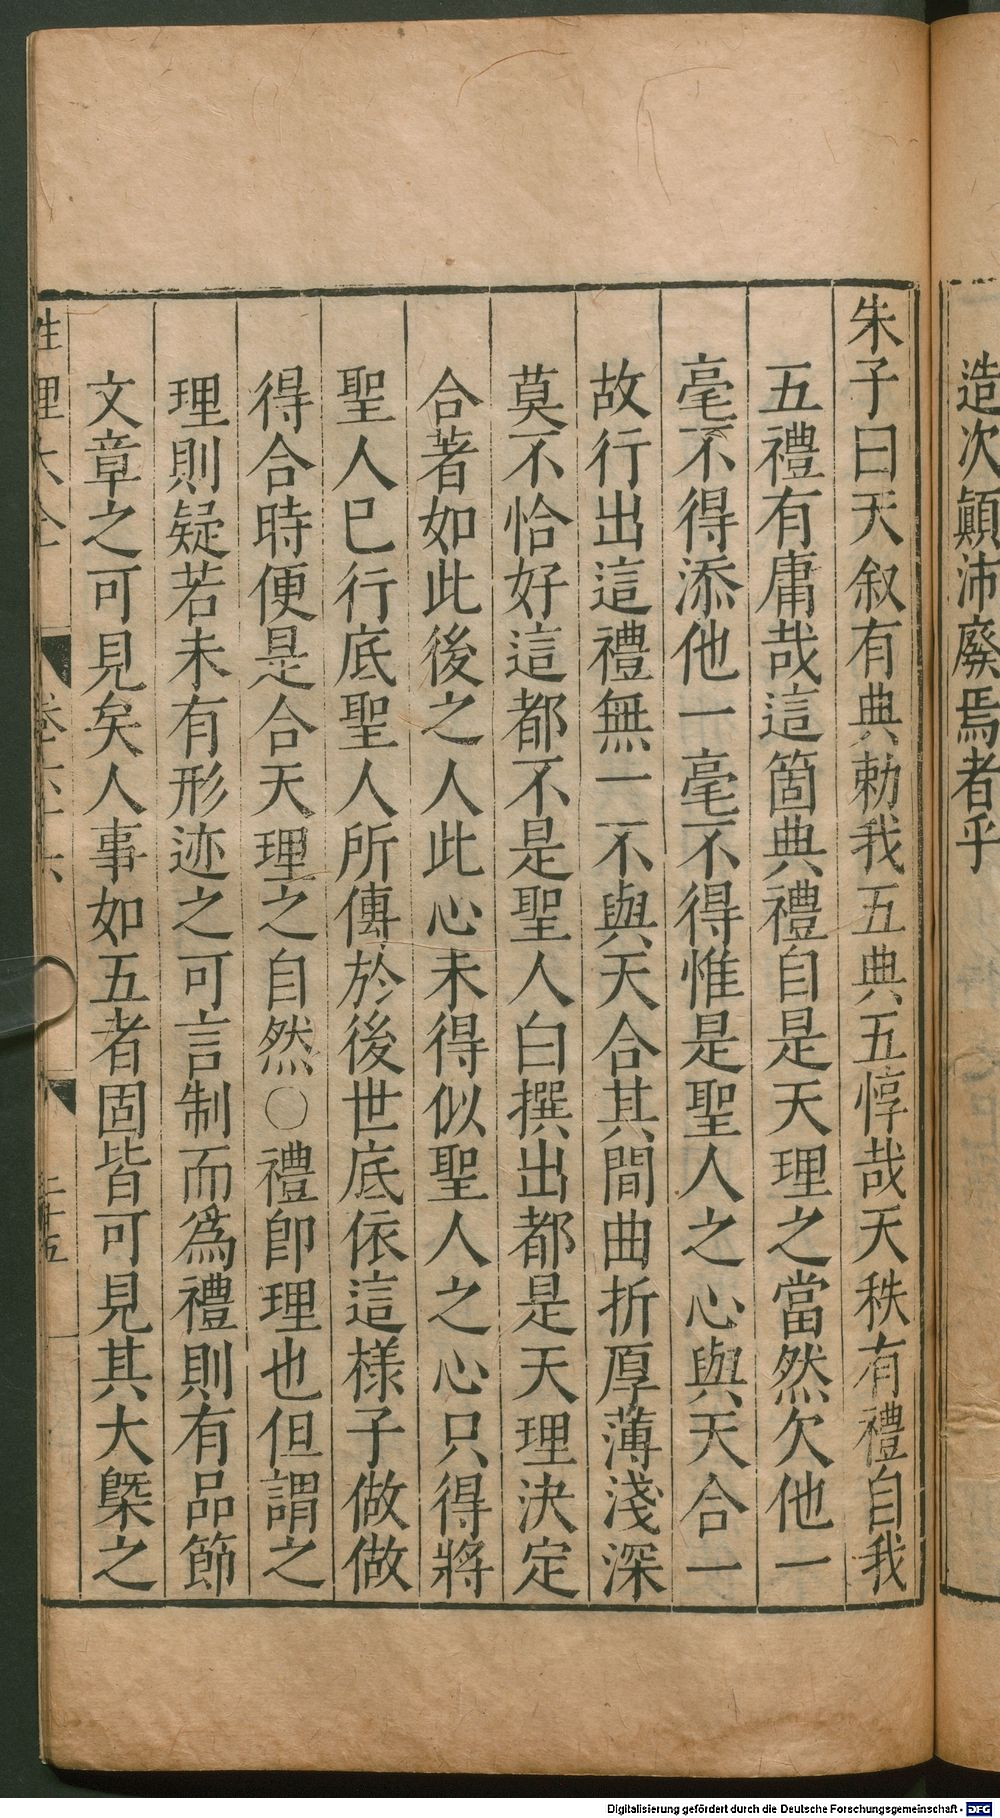 造次顛沛廢焉者乎
朱子曰天叙有典勅我五典五惇哉天秩有禮自我
五禮有庸哉這箇典禮自是天理之當然欠他一
毫不得添他一毫不得惟是聖人之心與天合一
故行出這禮無一不與天合其間曲折厚薄淺深
莫不恰好這都不是聖人白撰出都是天理決定
合著如此後之人此心未得似聖人之心只得將
聖人已行底聖人所傳於後世底依這樣子做做
得合時便是合天理之自然〇禮即理也但謂之
理則疑若未有形迹之可言制而爲禮則有品節
文章之可見矣人事如五者固皆可見其大槩之
性理大全 卷 六 二十五
Digitalisierung gefördert durch die Deutsche Forschungsgemeinschaft - DFG